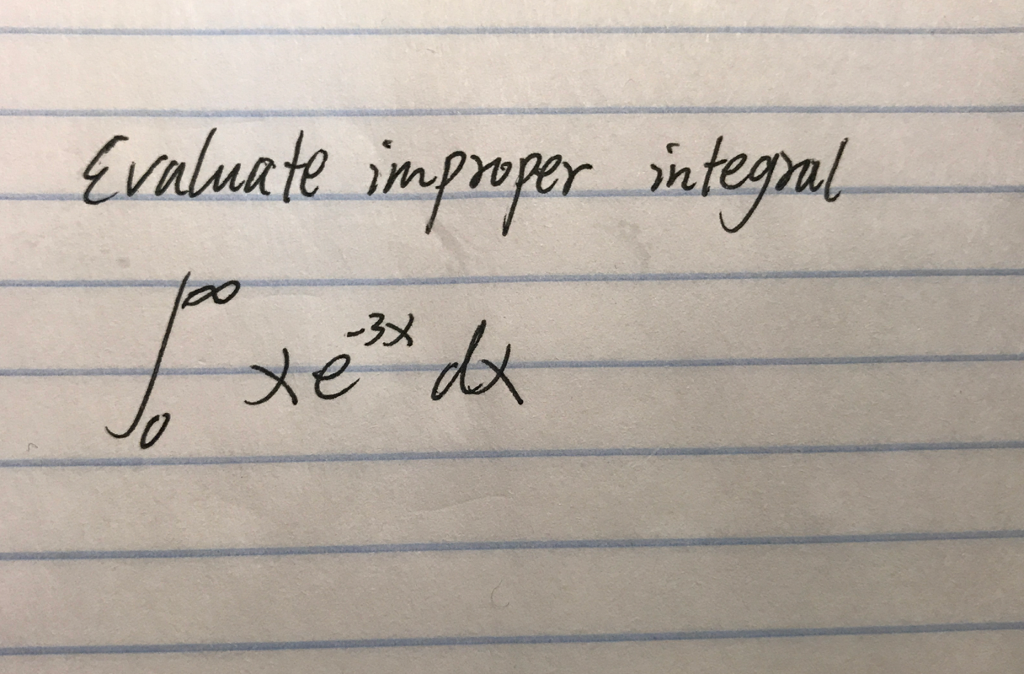 Evaluate improper integral
∫₀^∞ xe^{-3x} dx